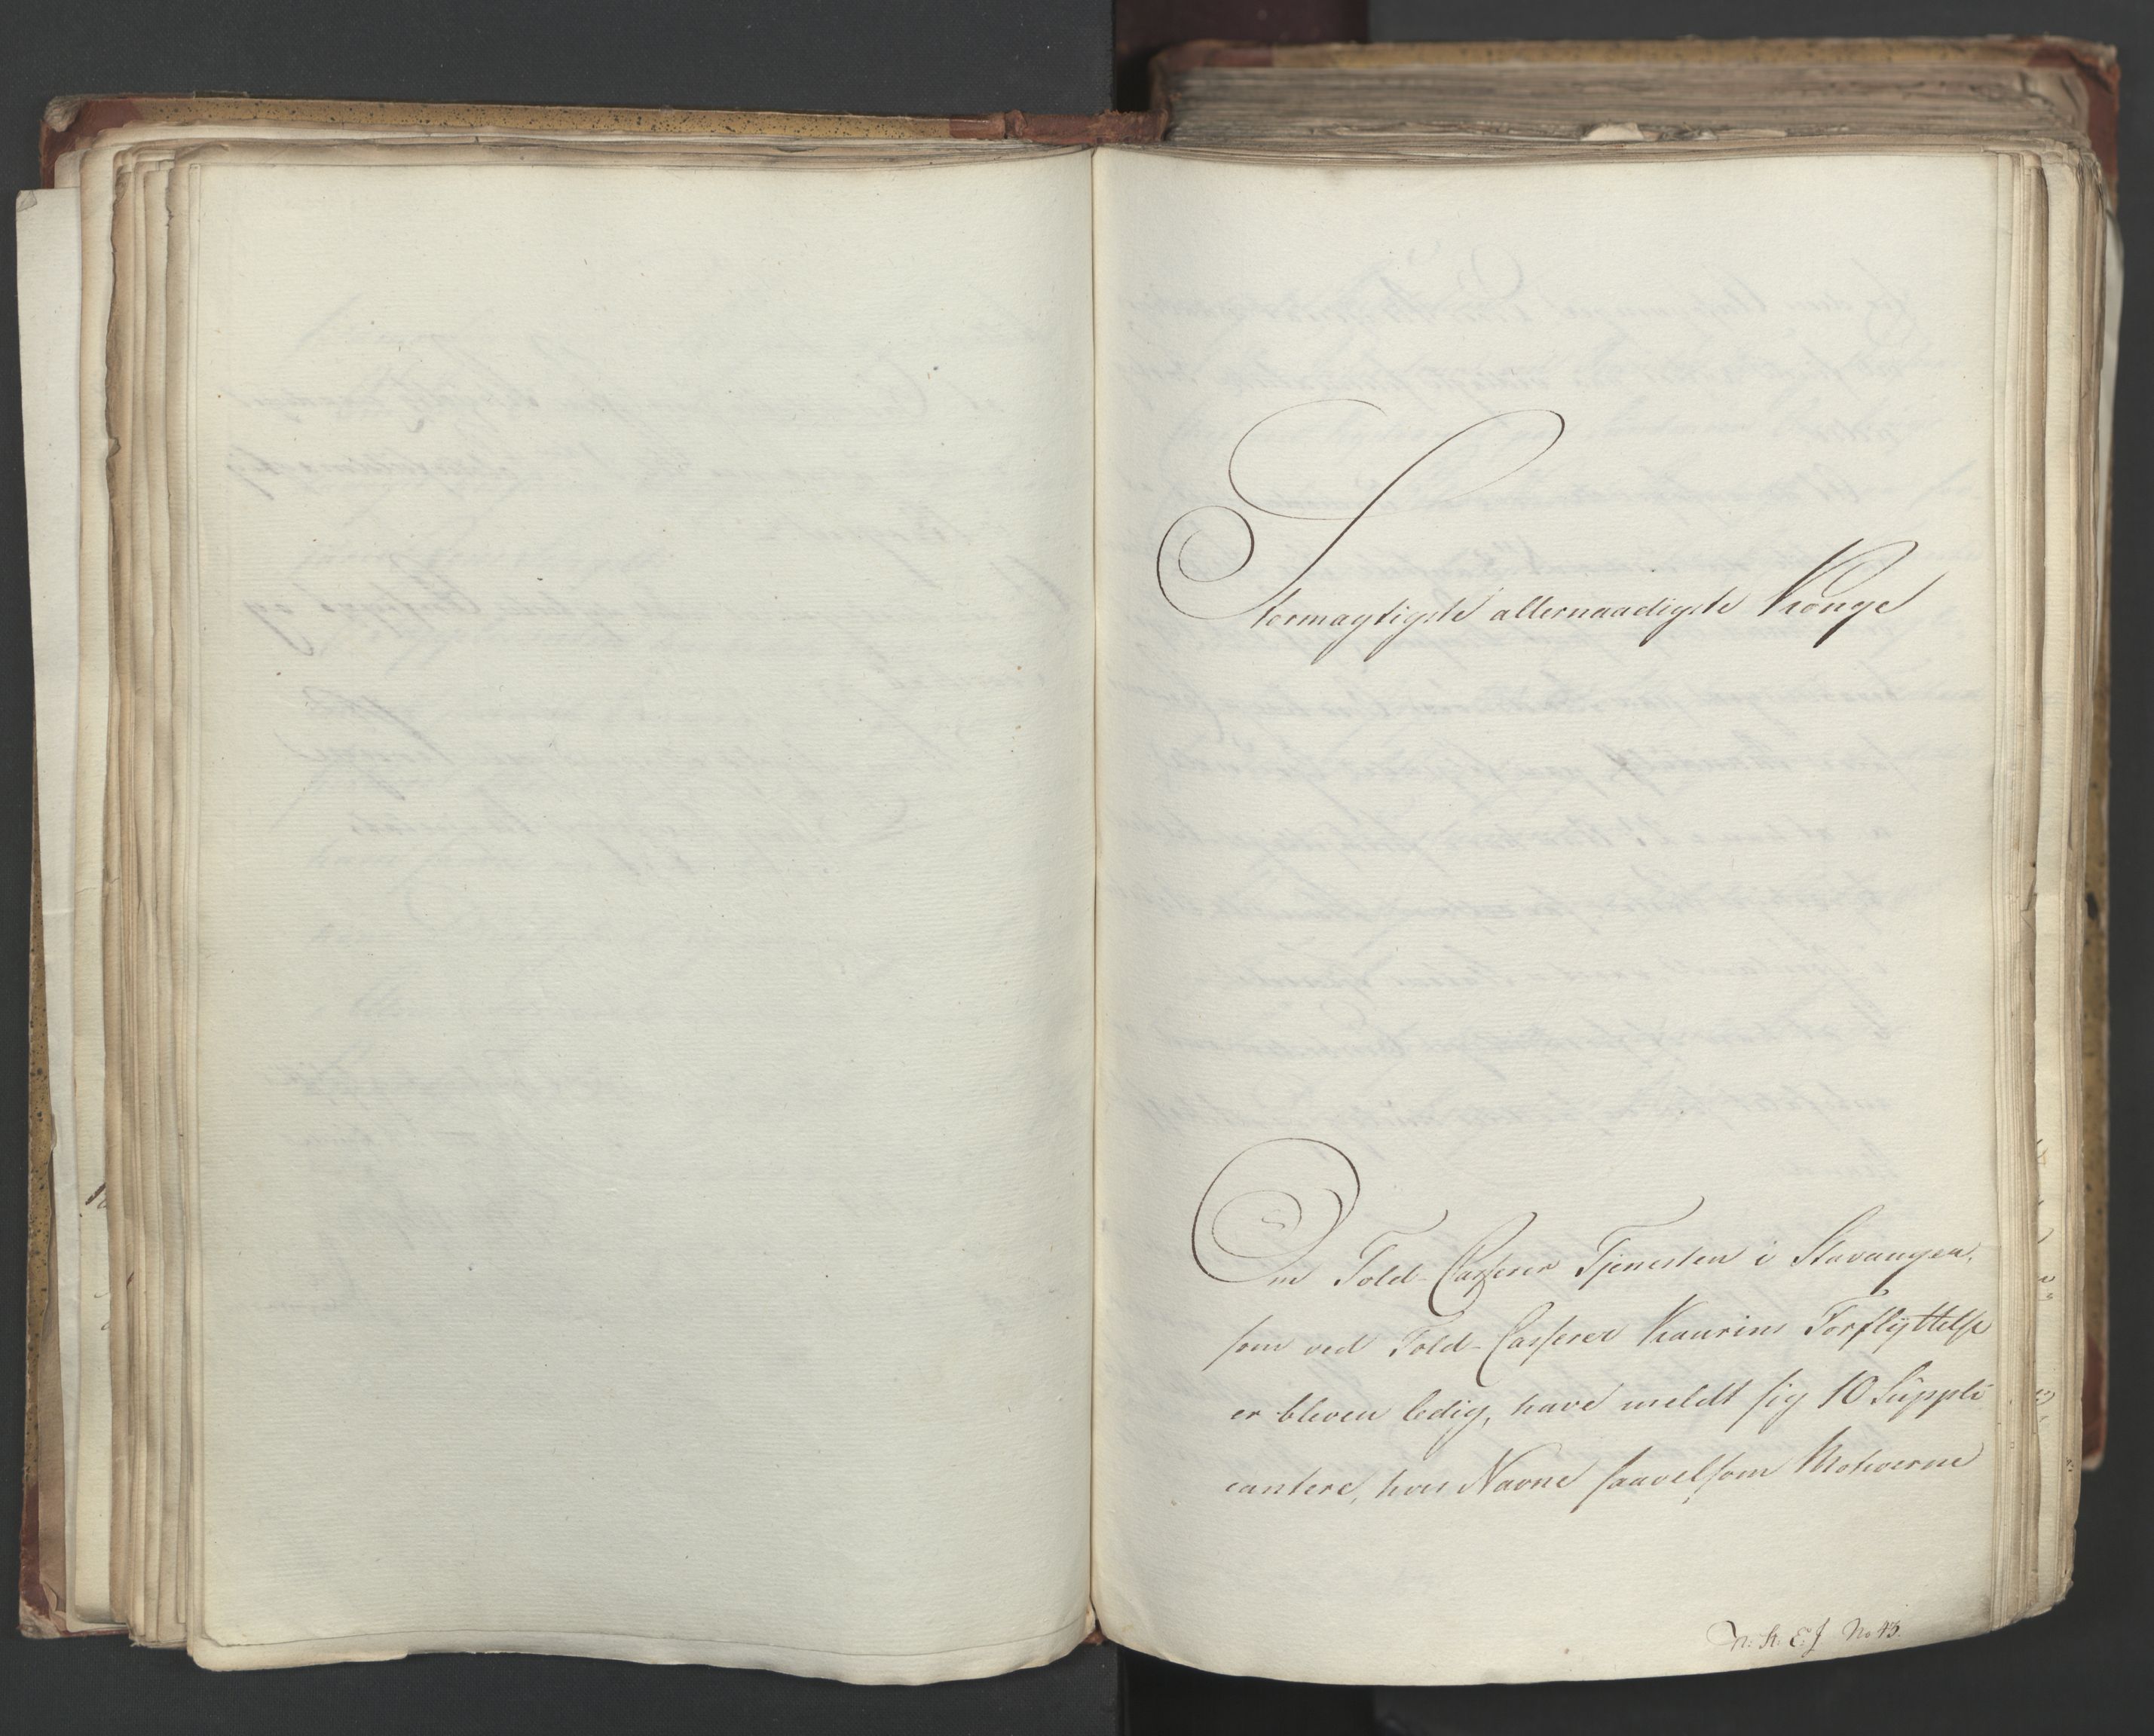 Stormægtigste allernaadigste Konge
Om Told-Casserer Tjenesten i Stavanger,
som ved Told-Casserer Kaurins Forflÿttelse
er bleven ledig, have meldt sig 10 Suppli-
cantere, hvis Navne saavelsom Motiverne
No 43.